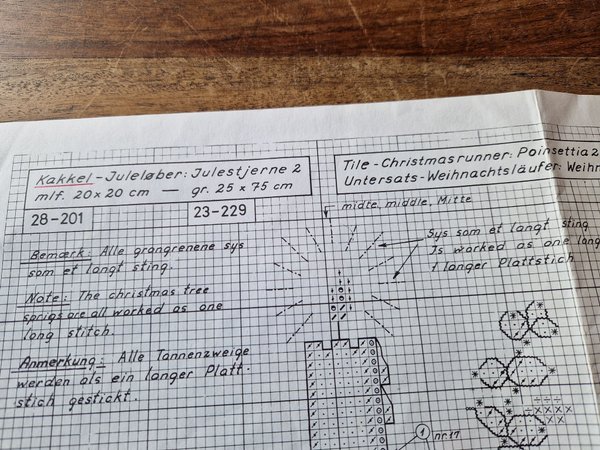 Kakkel-Juleløber: Julestjerne 2
mlf. 20 x 20 cm — gr. 25 x 75 cm
28-201
23-229
Tile-Christmasrunner: Poinsettia 2
Untersats-Weihnachtsläufer:
midte, middle, Mitte
Bemærk: Alle grangrenene sys
som et langt sting.
Note: The christmas tree
sprigs are all worked as one
long stitch.
Anmerkung: Alle Tannenzweige
werden als ein langer Platt-
stich gestickt.
Sys som et langt sting
Is worked as one long
1 langer Plattstich
1
nr. 17